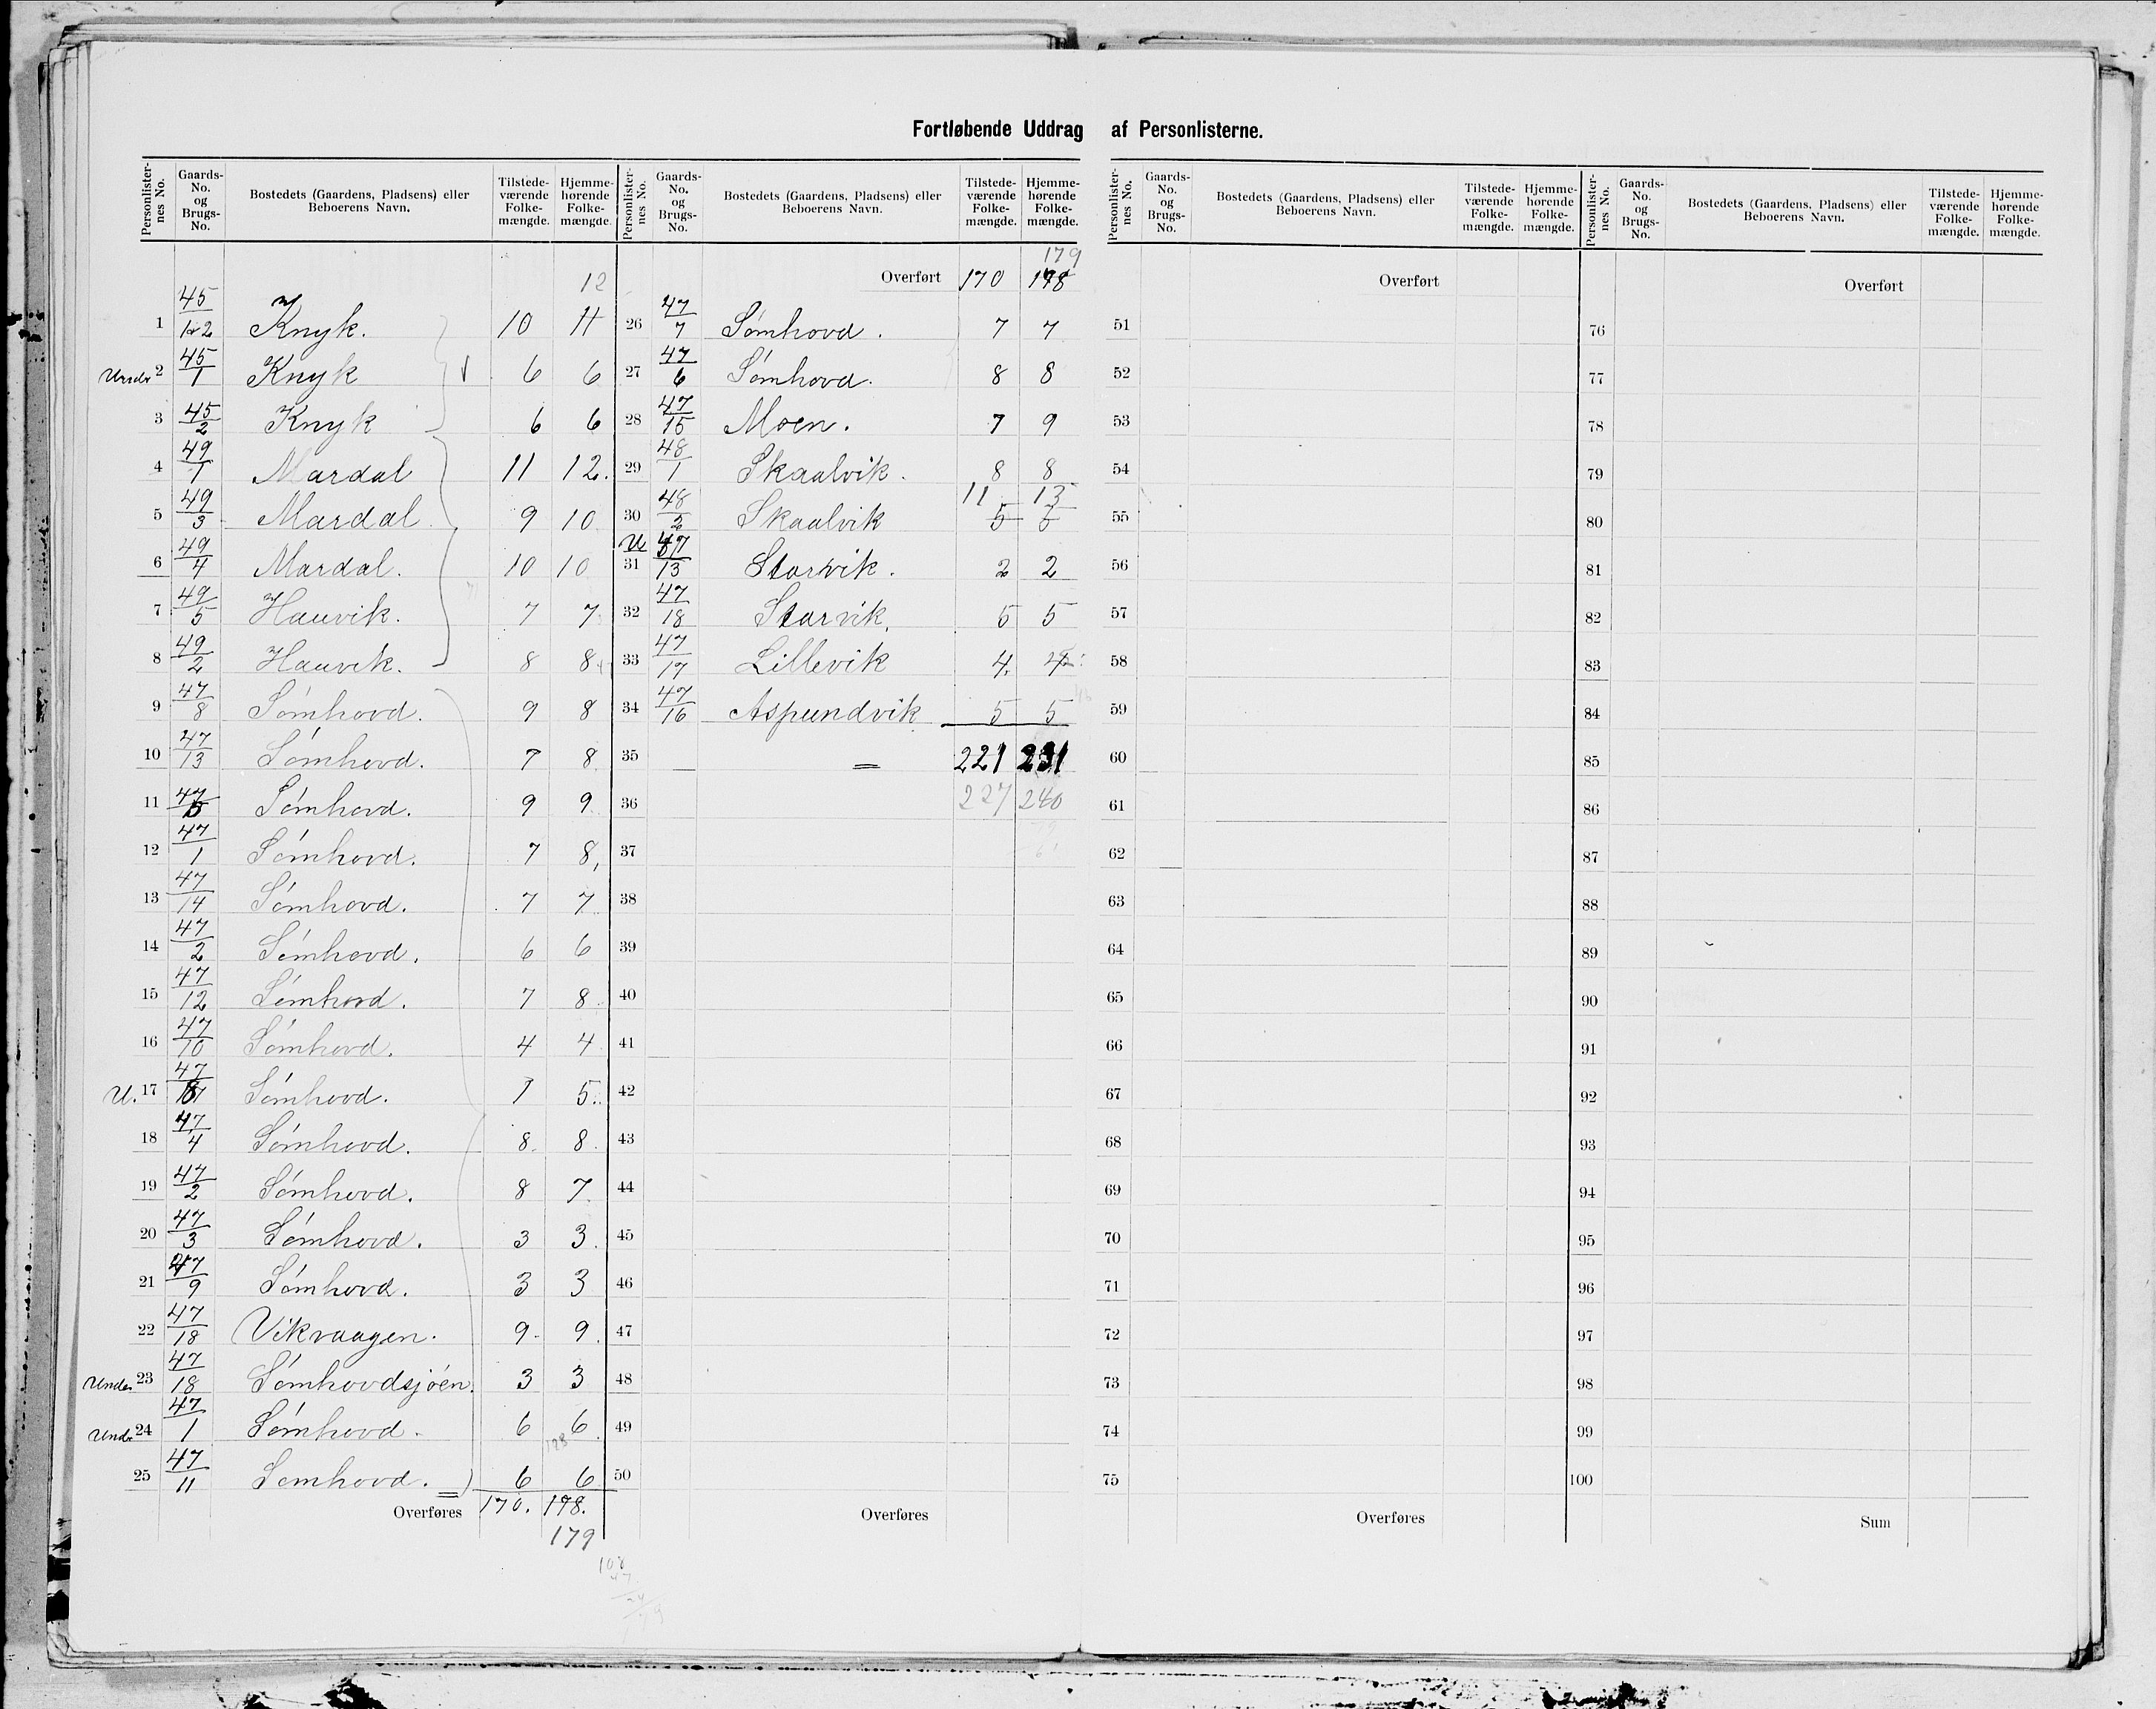 Fortløbende Uddrag af Personlisterne.
Personlister-nes No. | Gaards-No. og Brugs-No. | Bostedets (Gaardens, Pladsens) eller Beboerens Navn. | Tilstede-værende Folke-mængde. | Hjemme-hørende Folke-mængde.
12
1 45/1&2 Knyk. 10 11
Under 2 45/1 Knyk 6 6
3 45/2 Knyk 6 6
4 49/1 Mardal 11 12.
5 49/3 Mardal 9 10
6 49/4 Mardal. 10 10
7 49/5 Hauvik. 7 7
8 49/2 Hauvik. 8 8
9 47/8 Sómhovd. 9 8
10 47/13 Sómhovd. 7 8
11 47/5 Sómhovd. 9 9
12 47/1 Sómhovd. 7 8,
13 47/14 Sómhovd. 7 7
14 47/2 Sómhovd. 6 6
15 47/12 Sómhovd. 7 8
16 47/10 Sómhovd. 4 4
U. 17 47/ Sómhovd. 1 5.
18 47/4 Sómhovd. 8. 8.
19 47/2 Sómhovd. 8 7
20 47/3 Sómhovd. 3 3.
21 47/9 Sómhovd. 3 3
22 47/18 Vikvaagen. 9 9
Under 23 47/18 Sómhovdsjóen. 3 3
Und. 24 47/1 Sómhovd. 6 6
25 47/11 Somhovd. 6 6
Overføres 170. 178.
179
Personlister-nes No. | Gaards-No. og Brugs-No. | Bostedets (Gaardens, Pladsens) eller Beboerens Navn. | Tilstede-værende Folke-mængde. | Hjemme-hørende Folke-mængde.
179
Overført 170 178
26 47/7 Sómhovd. 7 7
27 47/6 Sómhovd. 8 8
28 47/15 Moen. 7 9
29 48/1 Skaalvik. 8 8
11 13
30 48/2 Skaalvik 5 6
U 31 47/13 Storvik. 2 2
32 47/18 Storvik. 5 5
33 47/17 Lillevik 4.
34 47/16 Aspundvik 5 5
35 = 221 231
36 227 240
37
38
39
40
41
42
43
44
45
46
47
48
49
50
Overføres
Personlister-nes No. | Gaards-No. og Brugs-No. | Bostedets (Gaardens, Pladsens) eller Beboerens Navn. | Tilstede-værende Folke-mængde. | Hjemme-hørende Folke-mængde.
Overført
51
52
53
54
55
56
57
58
59
60
61
62
63
64
65
66
67
68
69
70
71
72
73
74
75
Overføres
Personlister-nes No. | Gaards-No. og Brugs-No. | Bostedets (Gaardens, Pladsens) eller Beboerens Navn. | Tilstede-værende Folke-mængde. | Hjemme-hørende Folke-mængde.
Overført
76
77
78
79
80
81
82
83
84
85
86
87
88
89
90
91
92
93
94
95
96
97
98
99
100
Sum